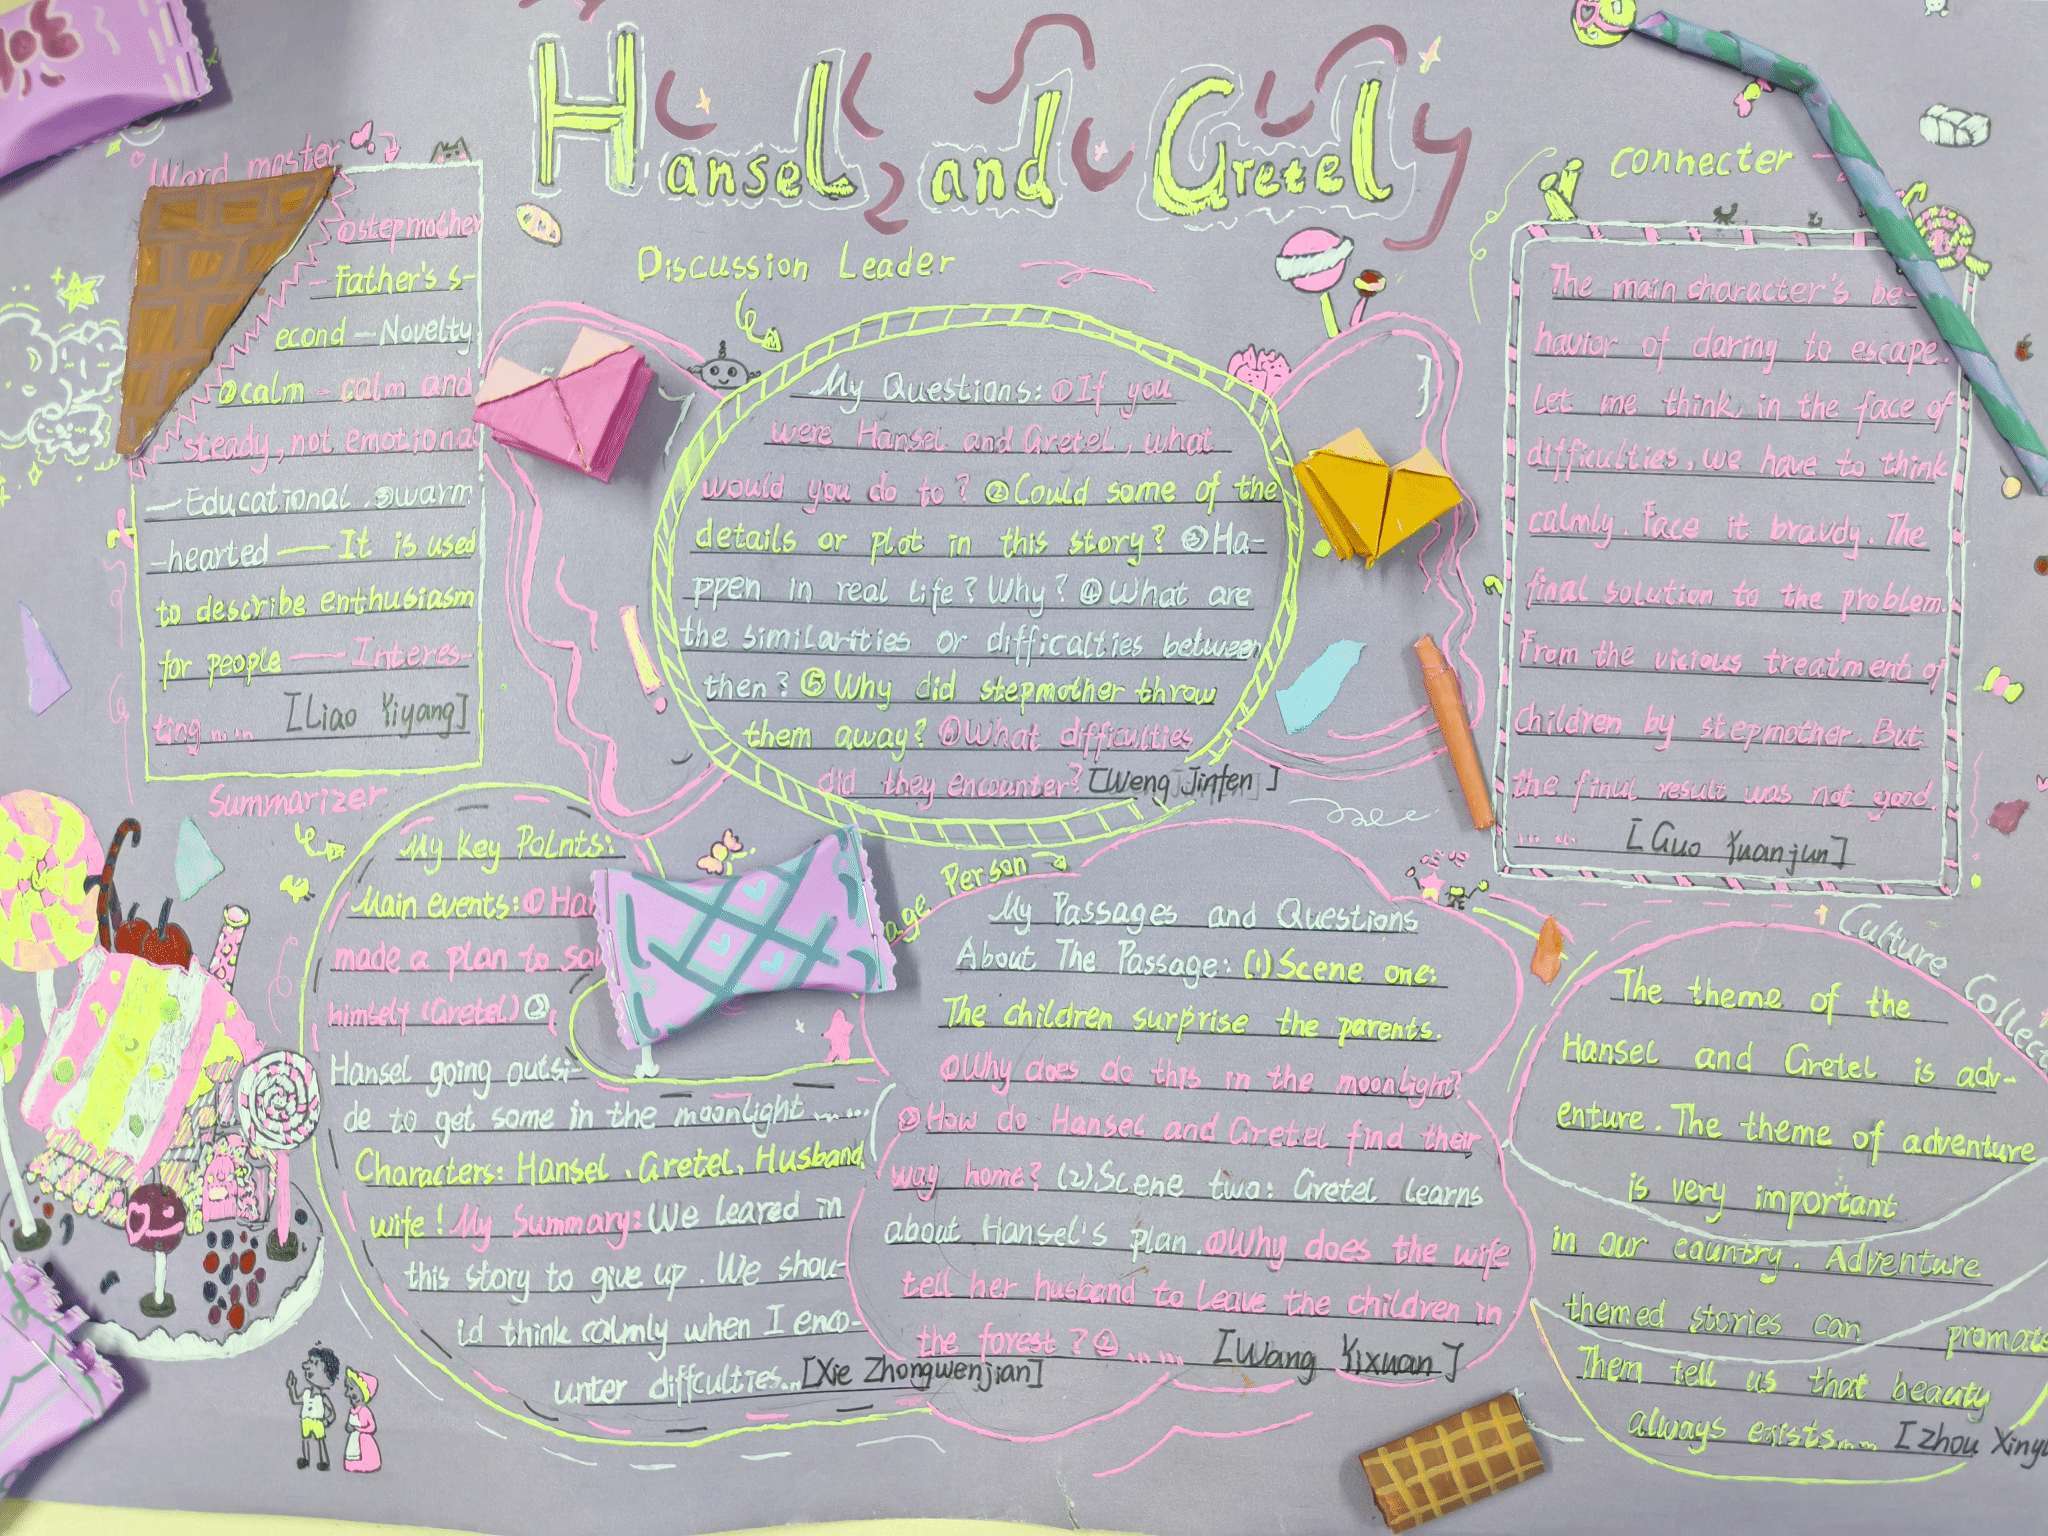 Hansel and Gretel
Word master
①stepmother
- Father's s-
econd - Novelty
②calm - calm and
steady, not emotional
- Educational. ③warm
-hearted - It is used
to describe enthusiasm
for people - Interes-
ting ......
[Liao Yiyang]
Discussion Leader
My Questions: ①If you
were Hansel and Gretel, what
would you do to? ②Could some of the
details or plot in this story? ③Ha-
ppen in real life? Why? ④What are
the similarities or difficalties between
then? ⑤Why did stepmother throw
them away? ⑥What difficulties
did they encounter? [Weng Jinfen]
connecter
The main character's be-
havior of daring to escape.
Let me think, in the face of
difficulties, we have to think
calmly. Face it bravdy. The
final solution to the problem.
From the vicious treatment of
children by stepmother. But
the final result was not good.
...... [Guo Yuanjun]
Summarizer
My Key Points:
Main events: ①
made a plan to
himself (Gretel) ②
Hansel going outsi-
de to get some in the moonlight ......
Characters: Hansel, Gretel, Husband
wife! My Summary: We leared in
this story to give up. We shou-
ld think calmly when I enco-
unter diffculties... [Xie Zhongwenjian]
Person
My Passages and Questions
About The Passage: (1) Scene one:
The children surprise the parents.
①Why does do this in the moonlight?
②How do Hansel and Gretel find their
way home? (2) Scene two: Gretel learns
about Hansel's plan. ①Why does the wife
tell her husband to leave the children in
the forest? ② ...... [Wang Yixuan]
Culture
The theme of the
Hansel and Gretel is adv-
enture. The theme of adventure
is very important
in our country. Adventure
themed stories can
Them tell us that beauty
always exists...... [Zhou